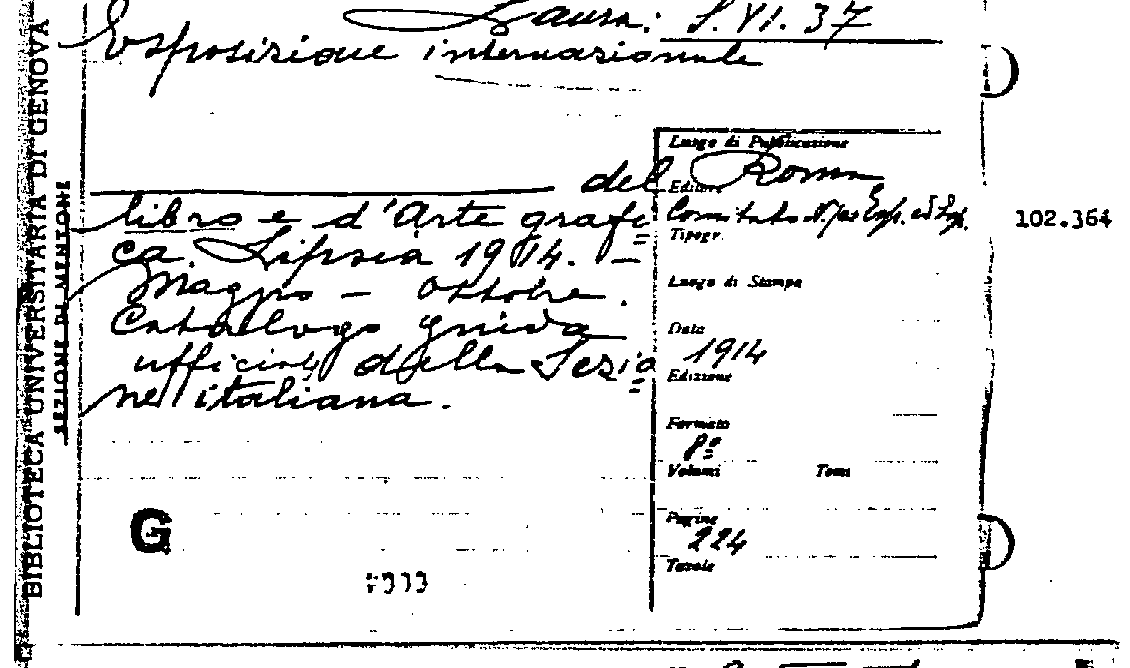 Laura: S.VI.37
Esposizione internazionale
del
libro e d'Arte grafi=
ca. Lipsia 1914. -
Maggio - Ottobre.
Catalogo guida
ufficiale della Sezio=
ne italiana.
Luogo di Pubblicazione
Roma
Editore
Comitato Esp.
Tipogr.
Luogo di Stampa
Data
1914
Edizione
Formato
8º
Volumi Tomi
Pagine
224
Tavole
102.364
G
BIBLIOTECA UNIVERSITARIA DI GENOVA
SEZIONE DI MENTONE